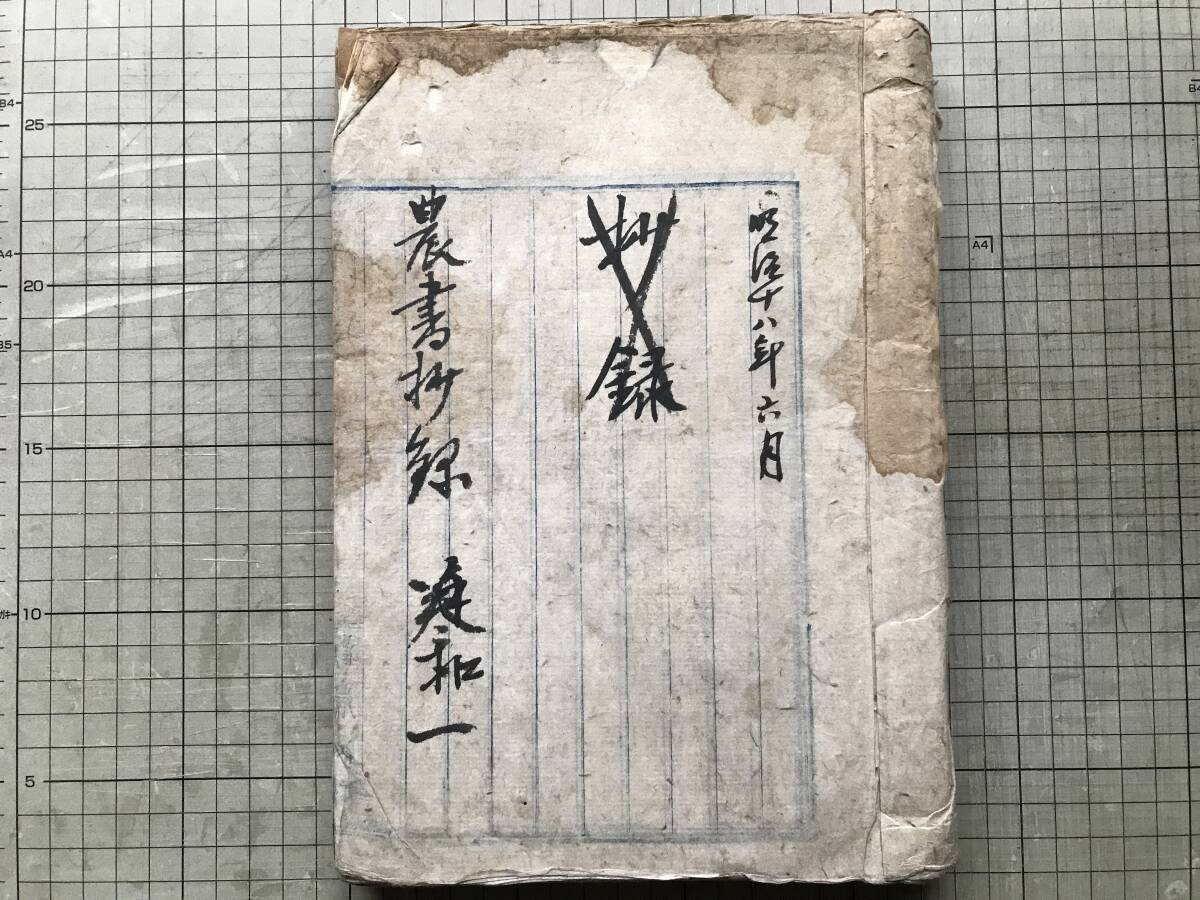 明治十八年六月
抄録
農書抄録 湊和一
B4
25
A4
20
B5
15
10
5
A4
B4